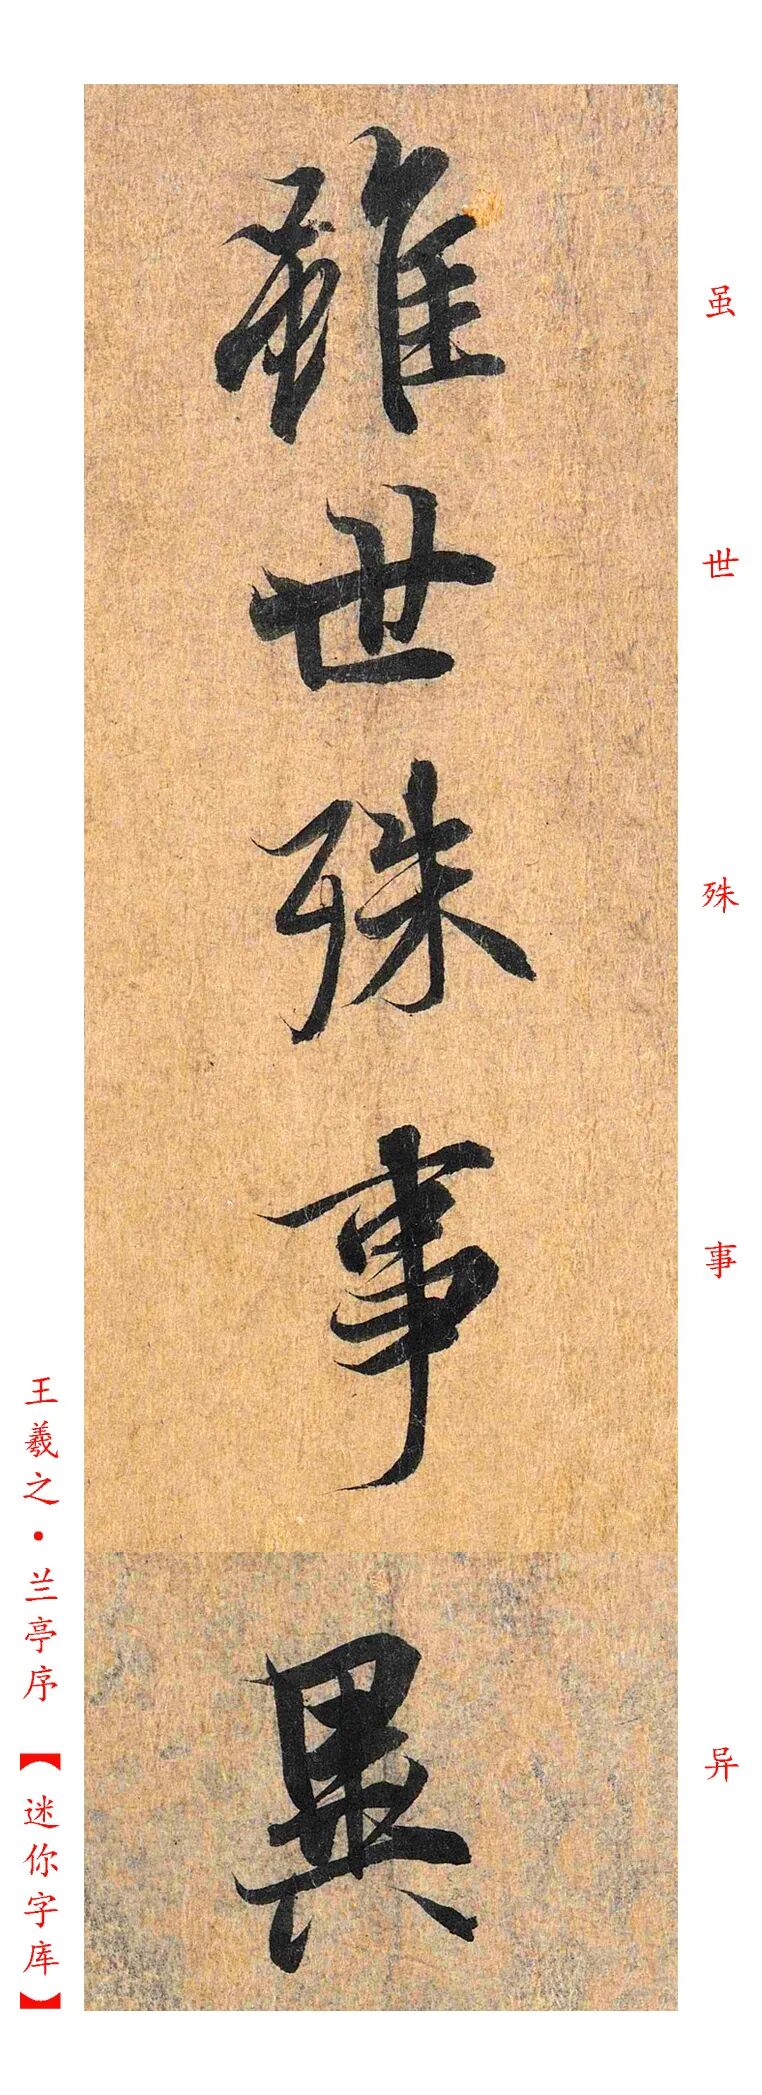 雖世殊事異
虽世殊事异
王羲之·兰亭序【迷你字库】